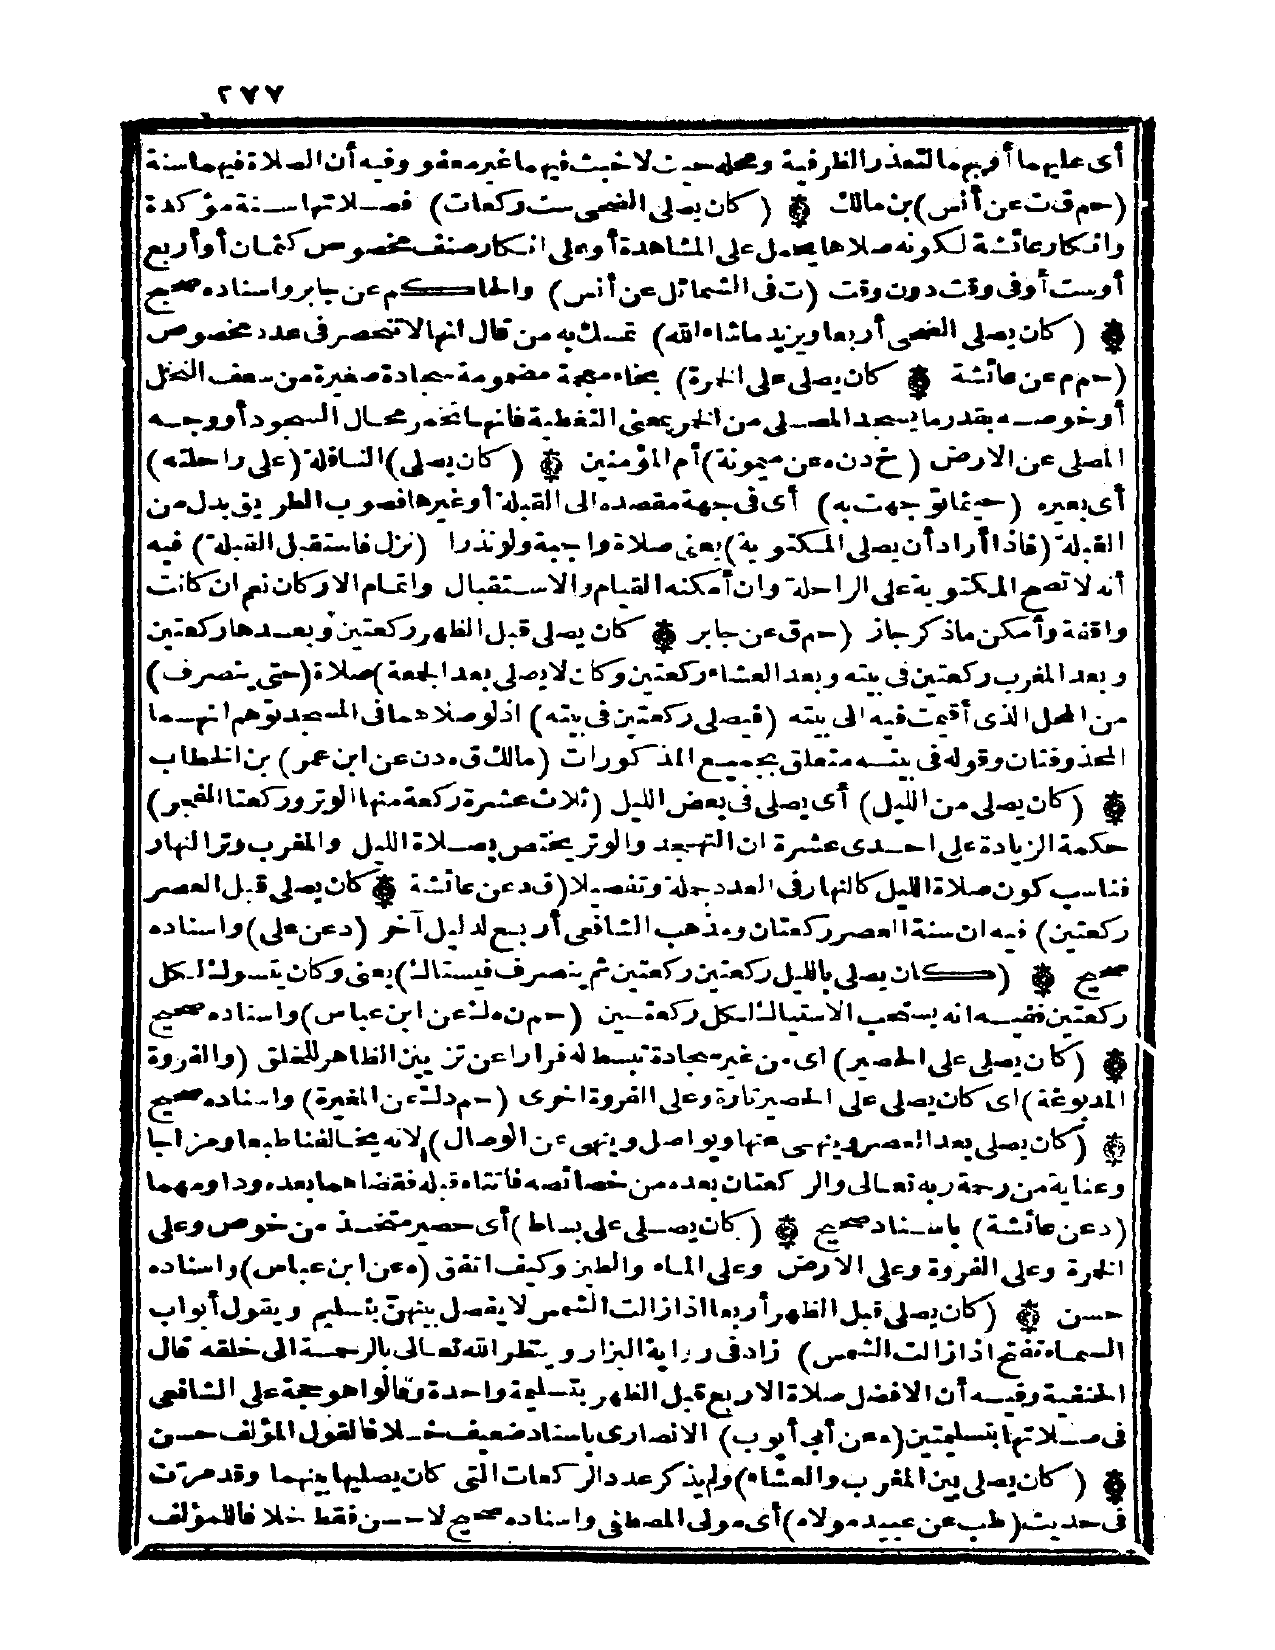 ٢٧٧
أى عليهما أو بهما لتعذر الظرفية ومحله حيث لا خبث فيهما غير معفو وفيه أن الصلاة فيهما سنة
(حم ق ت عن أنس) بن مالك ۞ (كان يصلى الضحى ست ركعات) فصلاتها سنة مؤكدة
وانكار عائشة لكونه صلاها يحمل على المشاهدة أو على انكار صنف مخصوص كثمان أو أربع
أو ست أو فى وقت دون وقت (ت فى الشمائل عن أنس) والحاكم عن جابر واسناده صحيح
۞ (كان يصلى الضحى أربعا ويزيد ما شاء الله) تمسك به من قال انها لا تنحصر فى عدد مخصوص
(حم م عن عائشة ۞ كان يصلى على الخمرة) بخاء معجمة مضمومة سجادة صغيرة من سعف النخل
أو خوصه بقدر ما يسجد المصلى من الخمر بمعنى التغطية فانها تخمر محال السجود أو وجه
المصلى عن الارض (خ د ن ه عن ميمونة) أم المؤمنين ۞ (كان يصلى) النافلة (على راحلته)
أى بعيره (حيثما توجهت به) أى فى جهة مقصده الى القبلة أو غيرها فصوب الطريق بدل من
القبلة (فاذا أراد أن يصلى المكتوبة) يعنى صلاة واجبة ولو نذرا (نزل فاستقبل القبلة) فيه
أنه لا تصح المكتوبة على الراحلة وان أمكنه القيام والاستقبال واتمام الاركان نم ان كانت
واقفة وأمكن ماذكر جاز (حم ق عن جابر ۞ كان يصلى قبل الظهر ركعتين وبعدها ركعتين
وبعد المغرب ركعتين فى بيته وبعد العشاء ركعتين وكان لا يصلى بعد الجمعة) صلاة (حتى ينصرف)
من المحل الذى أقيمت فيه الى بيته (فيصلى ركعتين فى بيته) اذ لو صلاهما فى المسجد توهم انهما
المحذوفتان وقوله فى بيته متعلق بجميع المذكورات (مالك ق د ن عن ابن عمر) بن الخطاب
۞ (كان يصلى من الليل) أى يصلى فى بعض الليل (ثلاث عشرة ركعة منها الوتر وركعتا الفجر)
حكمة الزيادة على احدى عشرة ان التهجد والوتر يختص بصلاة الليل والمغرب وتر النهار
فناسب كون صلاة الليل كالنهار فى العدد جملة وتفصيلا (ق د عن عائشة ۞ كان يصلى قبل العصر
ركعتين) فيه ان سنة العصر ركعتان ومذهب الشافعى أربع لدليل آخر (د عن على) واسناده
صحيح ۞ (كان يصلى بالليل ركعتين ركعتين ثم ينصرف فيستاك) يعنى وكان يتسوك لكل
ركعتين ففيه انه يستحب الاستياك لكل ركعتين (حم ن ه ك عن ابن عباس) واسناده صحيح
۞ (كان يصلى على الحصير) اى من غير سجادة تبسط له فرارا عن تزيين الظاهر للخلق (والفروة
المدبوغة) اى كان يصلى على الحصير تارة وعلى الفروة اخرى (حم د ك عن المغيرة) واسناده صحيح
۞ (كان يصلى بعد العصر وينهى عنها ويواصل وينهى عن الوصال) لانه يخالفنا طبعا ومزاجا
وعناية من رحمة ربه تعالى والركعتان بعده من خصائصه فاتتاه قبله فقضاهما بعده وداومهما
(د عن عائشة) باسناد صحيح ۞ (كان يصلى على بساط) أى حصير متخذ من خوص وعلى
الخمرة وعلى الفروة وعلى الارض وعلى الماء والطين وكيف اتفق (ه عن ابن عباس) واسناده
حسن ۞ (كان يصلى قبل الظهر أربعا اذا زالت الشمس لا يفصل بينهن بتسليم ويقول أبواب
السماء تفتح اذا زالت الشمس) زاد فى رواية البزار وينظر الله تعالى بالرحمة الى خلقه قال
الحنفية وفيه أن الافضل صلاة الاربع قبل الظهر بتسليمة واحدة وقالوا هو حجة على الشافعى
فى صلاتها بتسليمتين (ه عن أبى أيوب) الانصارى باسناد ضعيف خلافا لقول المؤلف حسن
۞ (كان يصلى بين المغرب والعشاء) ولم يذكر عدد الركعات التى كان يصليها بينهما وقد مرت
فى حديث (طب عن عبيد مولاه) أى مولى المصطفى واسناده صحيح لا حسن فقط خلافا للمؤلف